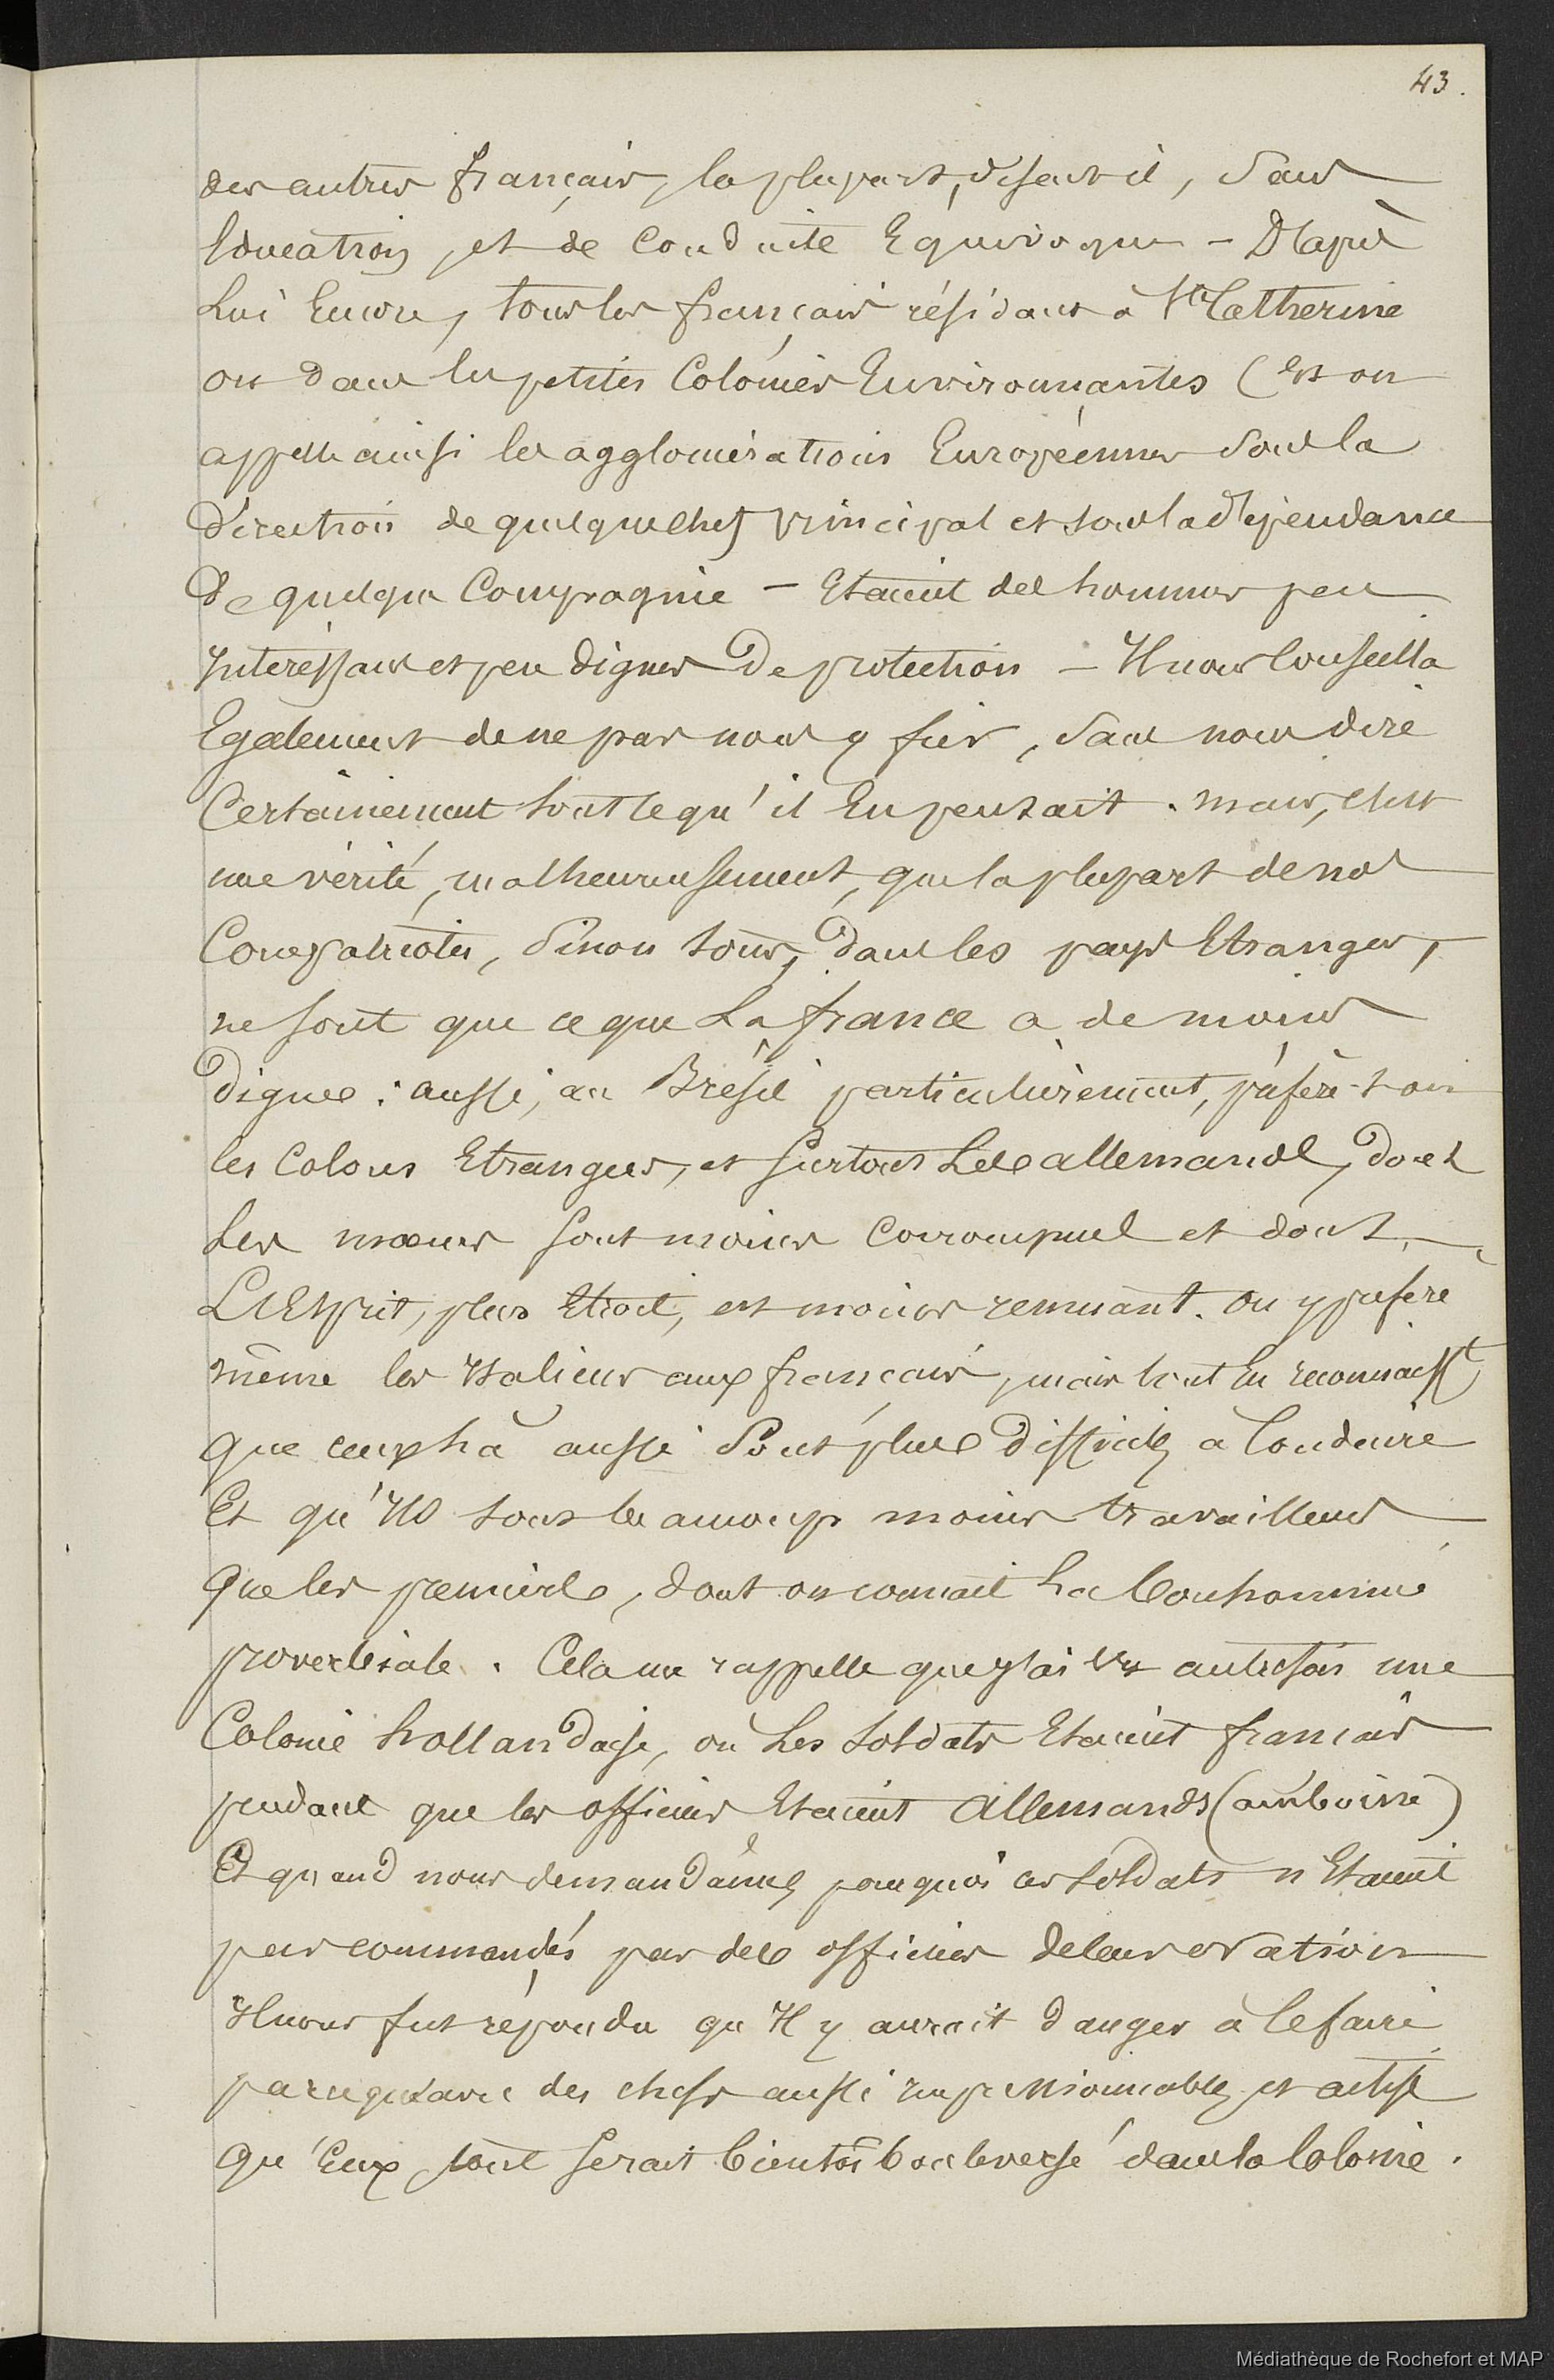 43.
des autres français, la plupart, disait-il, sans
Education, et de Conduite Equivoque – D'après
Lui Encore, tous les français résidant à Ste Catherine
ou dans les petites Colonies Environnantes (Et on
appelle ainsi les agglomérations Européennes sous la
direction de quelque chef principal et sous la dépendance
de quelque Compagnie – Etaient des hommes peu
Intéressans et peu dignes de protection – Il nous Conseilla
Egalement de ne pas nous y fier, sans nous dire
Certainement tout ce qu'il En pensait. mais, c'est
une vérité, malheureusement, que la plupart de nos
Compatriotes, Sinon tous, dans les pays Etrangers,
ne sont que ce que La france a de moins
digne : aussi, au Brésil particulièrement, préfère-t-on
les Colons Etrangers, et surtout Les allemands, dont
Les mœurs sont moins corrompues et dont
L'Esprit, plus Etroit, est moins remuant. On y préfère
même les Italiens aux français, mais tout En reconnaisst
que ceux là aussi Sont plus difficiles à Conduire
Et qu'Ils sont beaucoup moins travailleurs
Que les premiers, dont on connait La bonhommie
proverbiale. Cela me rappelle que j'ai Vu autrefois une
Colonie hollandaise, où Les Soldats Etaient français
pendant que les officiers Etaient Allemands (amboine)
Et quand nous demandâmes pourquoi ces soldats n'Etaient
pas commandés par des officiers de leur nation
Il nous fut répondu qu'Il y aurait danger à le faire
parce qu'avec des chefs aussi impressionnables et actifs
Qu'Eux, tout serait bientôt bouleversé dans la Colonie.
Médiathèque de Rochefort et MAP